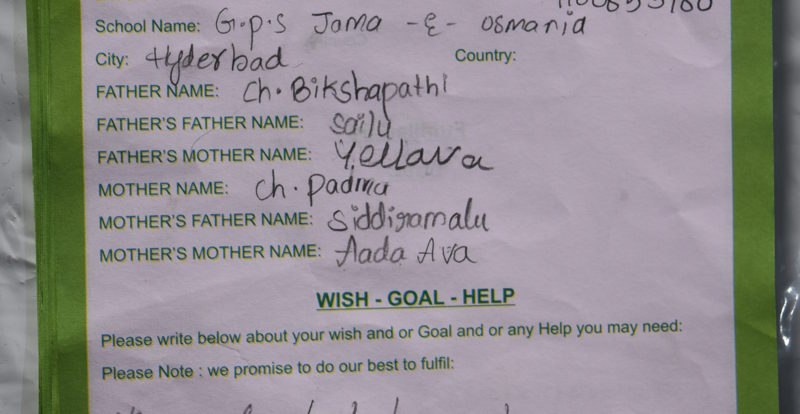 School Name: G.p.s Jama -e- osmania
City: Hyderbad Country:
FATHER NAME: Ch. Bikshapathi
FATHER'S FATHER NAME: Sailu
FATHER'S MOTHER NAME: Yellava
MOTHER NAME: Ch. padma
MOTHER'S FATHER NAME: Siddiramalu
MOTHER'S MOTHER NAME: Aada Ava
WISH - GOAL - HELP
Please write below about your wish and or Goal and or any Help you may need:
Please Note : we promise to do our best to fulfil: